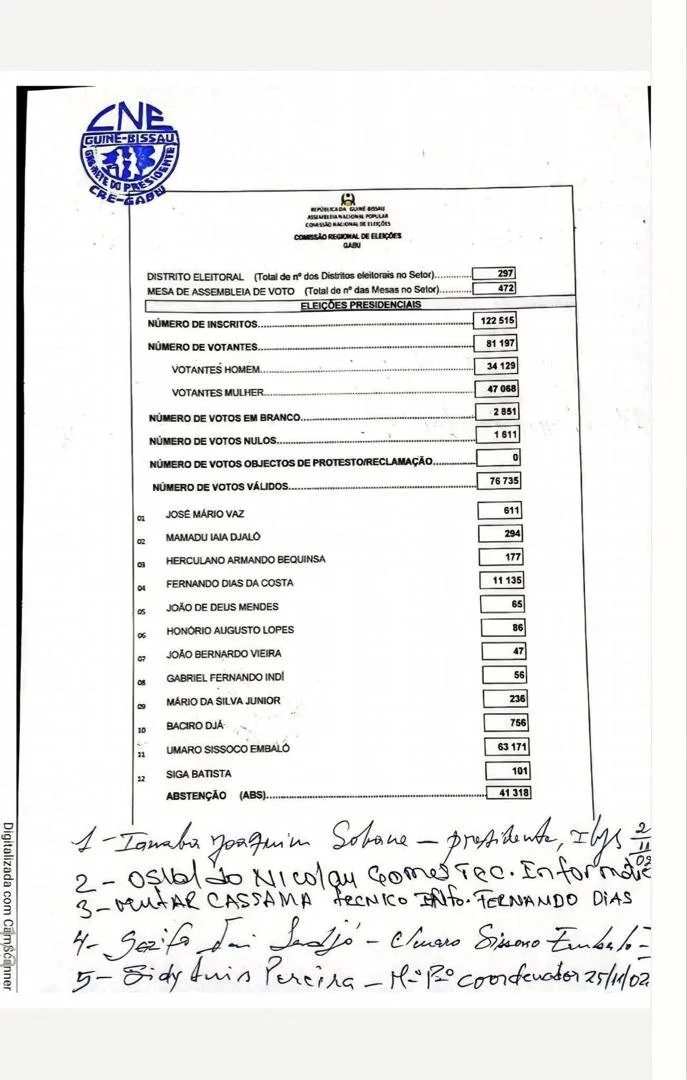 CNE
GUINÉ-BISSAU
GABINETE DO PRESIDENTE
CRE-GABU
REPÚBLICA DA GUINÉ-BISSAU
ASSEMBLEIA NACIONAL POPULAR
COMISSÃO NACIONAL DE ELEIÇÕES
COMISSÃO REGIONAL DE ELEIÇÕES
GABU
DISTRITO ELEITORAL (Total de nº dos Distritos eleitorais no Setor)............ 297
MESA DE ASSEMBLEIA DE VOTO (Total de nº das Mesas no Setor)........... 472
ELEIÇÕES PRESIDENCIAIS
NÚMERO DE INSCRITOS............ 122 515
NÚMERO DE VOTANTES............ 81 197
VOTANTES HOMEM............ 34 129
VOTANTES MULHER............ 47 068
NÚMERO DE VOTOS EM BRANCO............ 2 851
NÚMERO DE VOTOS NULOS............ 1 611
NÚMERO DE VOTOS OBJECTOS DE PROTESTO/RECLAMAÇÃO............ 0
NÚMERO DE VOTOS VÁLIDOS............ 76 735
01 JOSÉ MÁRIO VAZ 611
02 MAMADU IAIA DJALÓ 294
03 HERCULANO ARMANDO BEQUINSA 177
04 FERNANDO DIAS DA COSTA 11 135
05 JOÃO DE DEUS MENDES 65
06 HONÓRIO AUGUSTO LOPES 86
07 JOÃO BERNARDO VIEIRA 47
08 GABRIEL FERNANDO INDÍ 56
09 MÁRIO DA SILVA JUNIOR 236
10 BACIRO DJÁ 756
11 UMARO SISSOCO EMBALÓ 63 171
12 SIGA BATISTA 101
ABSTENÇÃO (ABS)............ 41 318
1 - Joaquim - presidente,
2 - Nicolau Gomes Tec.
3 - CASSAMA TECNICO INFO. FERNANDO DIAS
4 - - Embaló -
5 - Sidy Luis Pereira - coordenador 25/11/02
Digitalizada com CamScanner